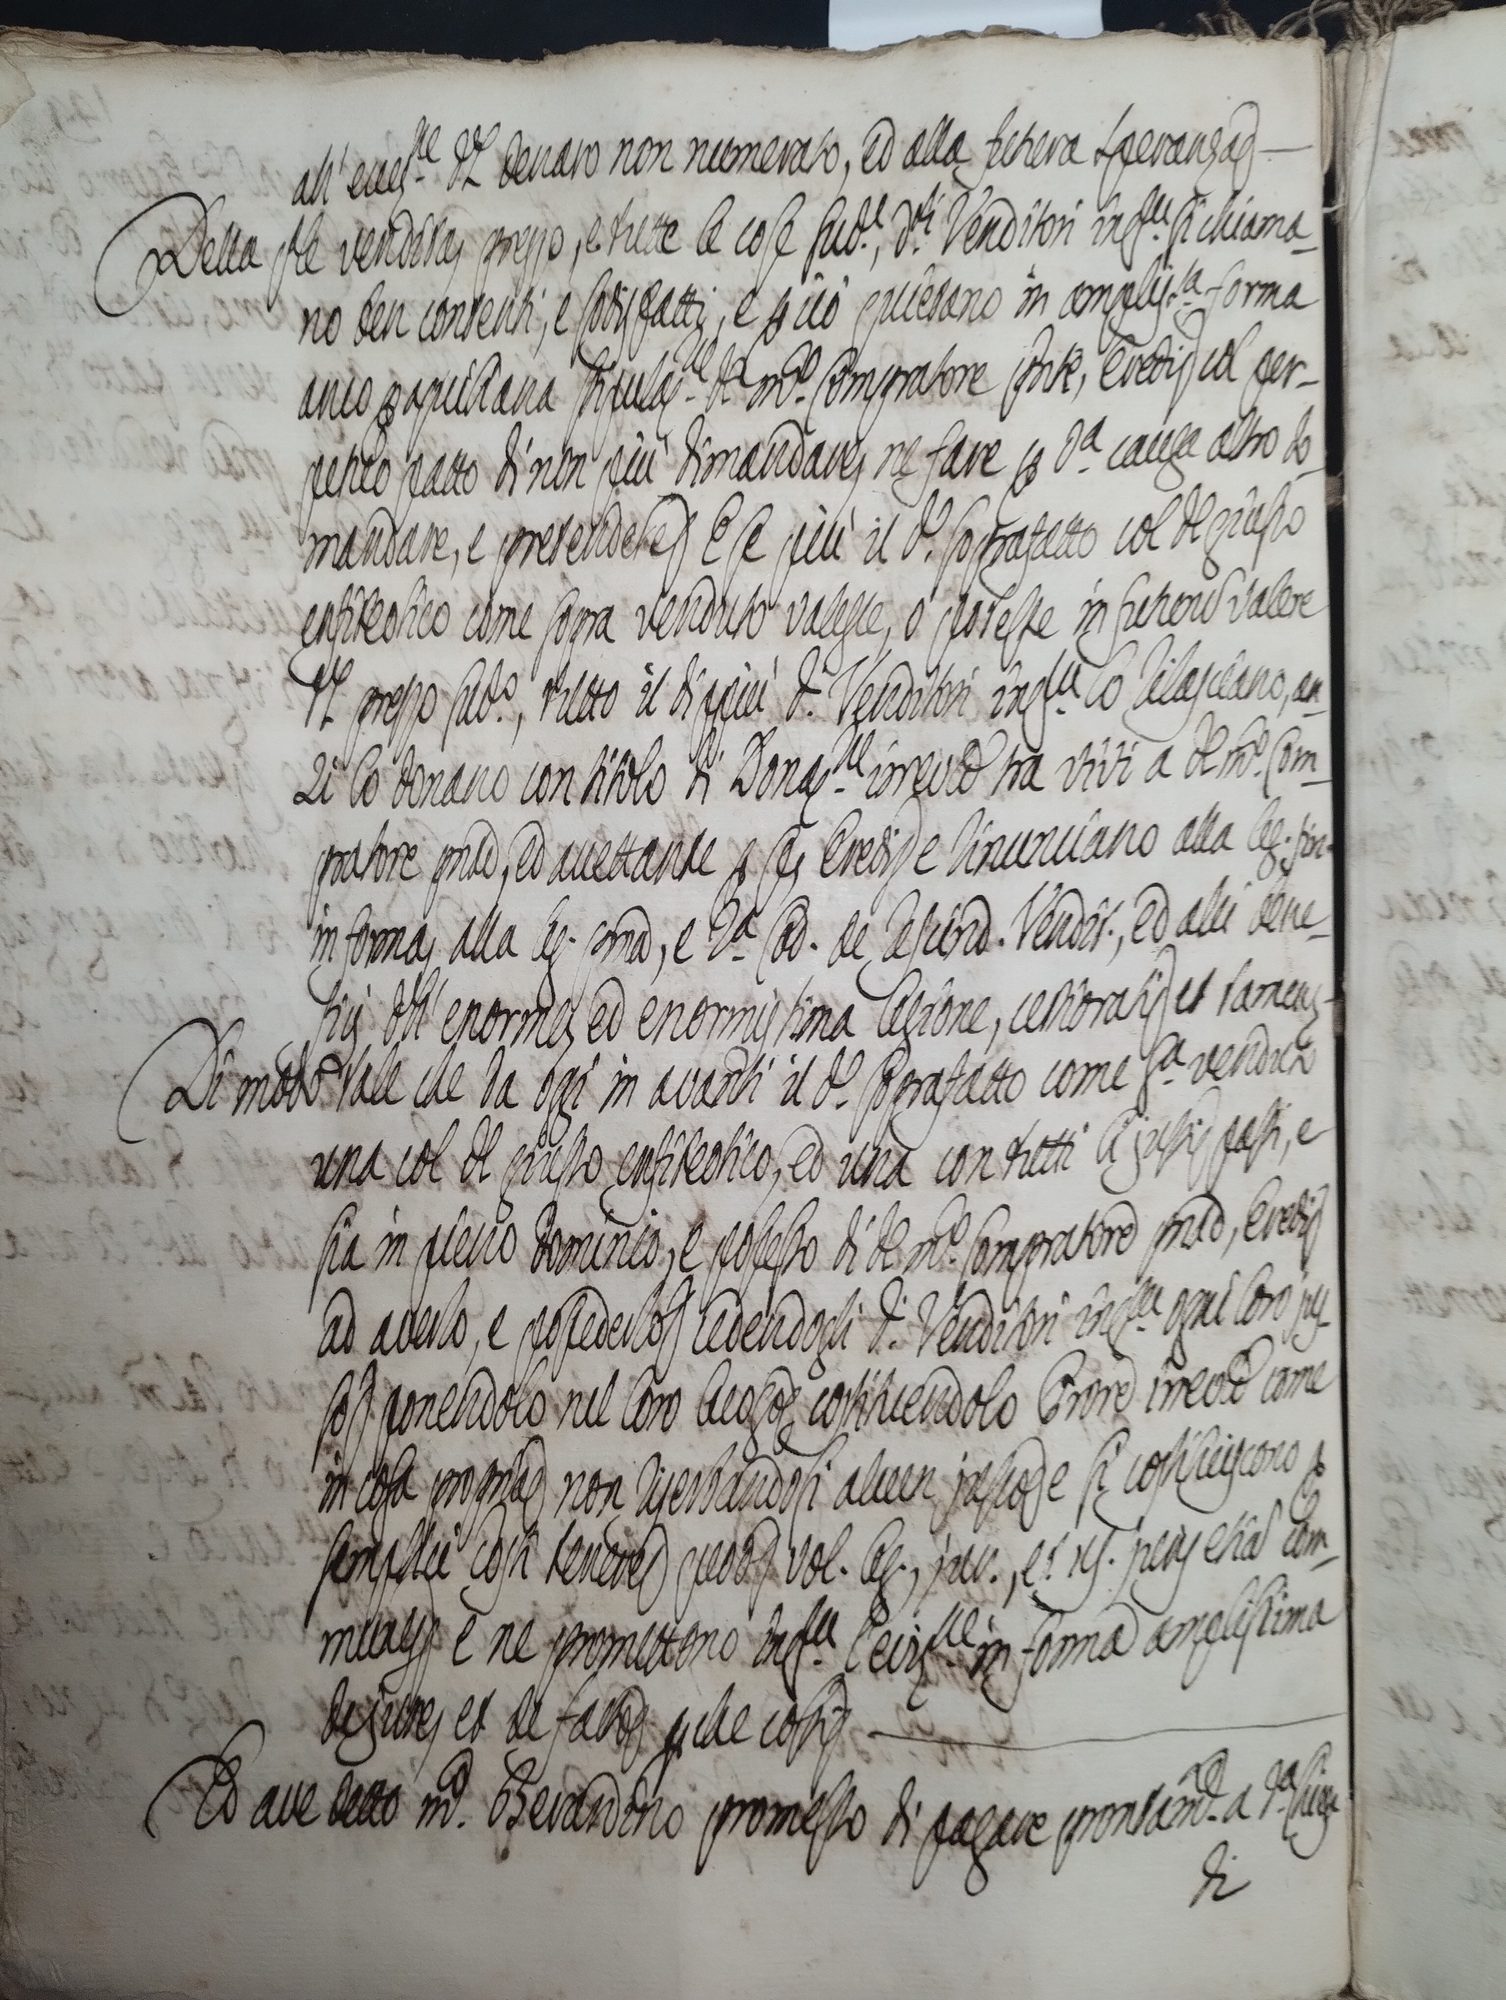 all' eccez.ne del denaro non numerato, ed alla futura speranza
Della qle vendita, prezzo, e tutte le cose sud.e, d.ti Venditori ins.me si chiama-
no ben contenti, e sodisfatti, e p ciò quietano in ampliss.ma forma
anco p aquiliana stipulaz.ne d.o m.o Compratore pnte, Eredi col per-
petuo patto di non più dimandare, ne fare p d.a causa altro do-
mandare, e pretendere E se più il d.o sopratetto col del giusto
enfiteotico come sopra venduto valesse, ò potesse in futuro valere
del prezzo sud.o, tutto il dippiù d.i Venditori ins.me lo rilasciano, an-
zi lo donano con titolo di Donaz.ne irrevle tra vivi a d.o m.o Com-
pratore pnte, ed accettante p se, Eredi e rinunciano alla leg. sin-
in forma, alla leg. pma, e 2.a Cod. de rescind. Vendit., ed alli bene-
ficij dell' enorme, ed enormissima lesione, certiorati et tamen
Di modo tale che da oggi in avanti il d.o sopratatto come s.a venduto
una col del giusto enfiteotico, ed una con tutti li justi pesi, e
sia in pieno dominio, e possesso di d.o m.o Compratore pnte, Eredi
ad averlo, e possederlo cedendogli d.i Venditori ins.me ogni loro jus
ponendolo nel loro luogo, costituendolo Prore irrevle come
in cosa propria non riserbandosi alcun jusso, e si costituiscono p
semplici costi tenere quod vol. leg., jur., et
e ne promettono ins.me l' eviz.ne in forma amplissima
de jure, et de facto, p che così
Ed ave detto m.o Berardino promesso di pagare prontam.e a d.a
di